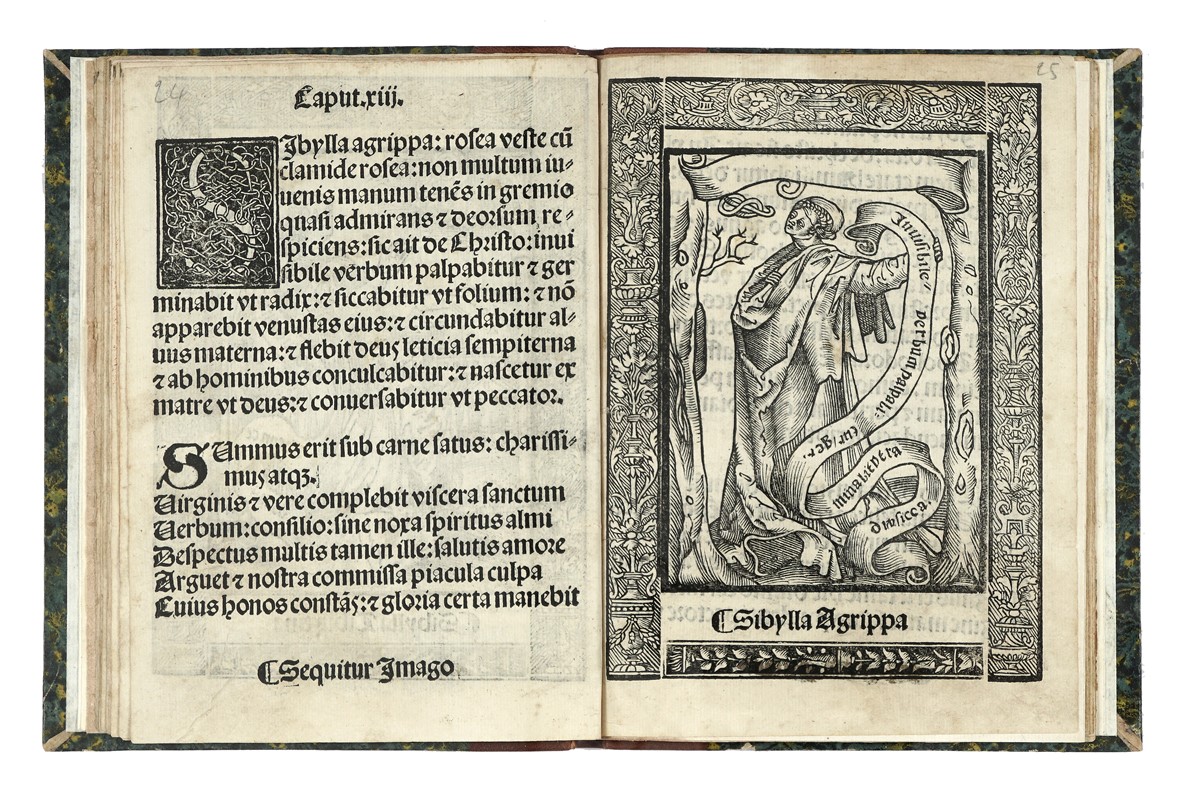 24
Caput.xiij.
SIbylla agrippa: rosea veste cũ
clamide rosea: non multum iu-
uenis manum tenẽs in gremio
quasi admirans ⁊ deorsum re-
spiciens: sic ait de Christo: inui
sibile verbum palpabitur ⁊ ger
minabit vt radix: ⁊ siccabitur vt folium: ⁊ nõ
apparebit venustas eius: ⁊ circundabitur al-
uus materna: ⁊ flebit deus leticia sempiterna
⁊ ab hominibus conculcabitur: ⁊ nascetur ex
matre vt deus: ⁊ conuersabitur vt peccator.
SUmmus erit sub carne satus: charissi-
mus atqꝫ.
Virginis ⁊ vere complebit viscera sanctum
Uerbum: consilio: sine noxa spiritus almi
Despectus multis tamen ille: salutis amore
Arguet ⁊ nostra commissa piacula culpa
Cuius honos constãs: ⁊ gloria certa manebit
¶ Sequitur Imago
25
Inuisibile
verbum palpabi
tur / ger
minabit vt ra
¶ Sibylla Agrippa